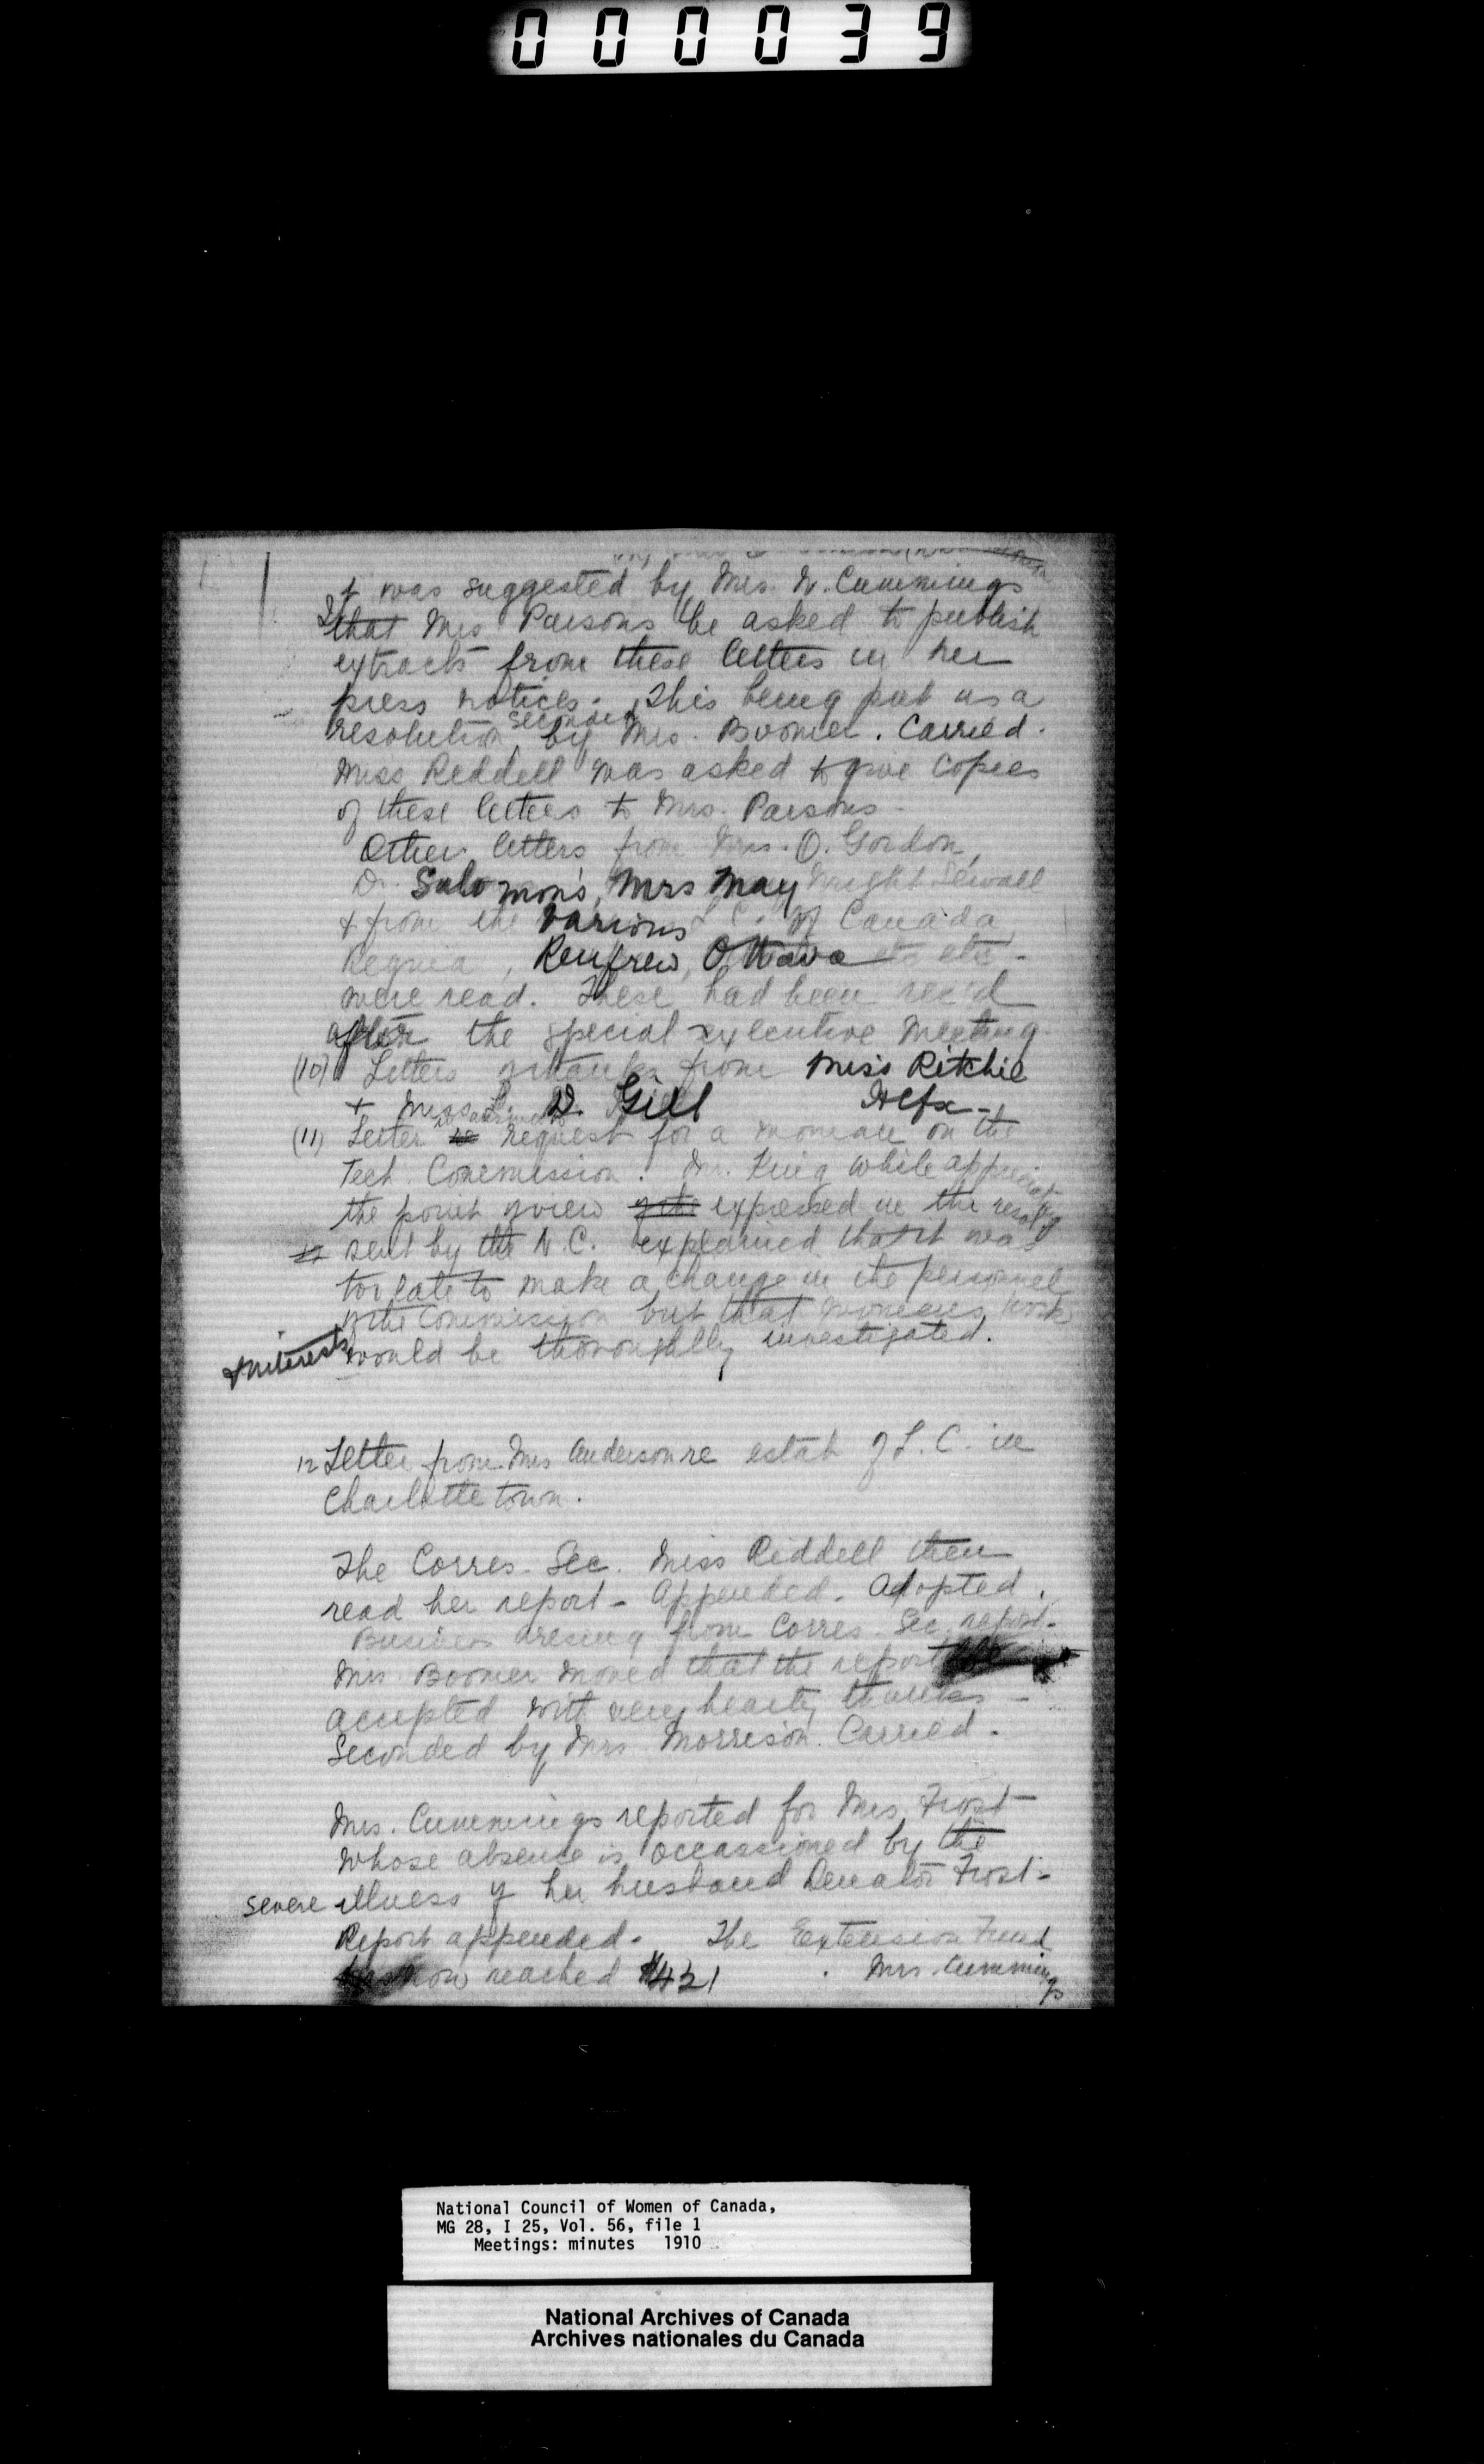 000039
It was suggested by Mrs. W. Cummings
that Mrs Parsons be asked to publish
extracts from these letters in her
press notices. This being put as a
resolution seconded by Mrs. Boomer. Carried.
Miss Reddell was asked to give copies
of these letters to Mrs. Parsons-
Other letters from Mrs. O. Gordon,
Dr. Salomon's, Mrs May Wright Sewall
+ from the various L.C. of Canada
Regina, Renfrew, Ottawa etc etc-
were read. These had been rec'd
after the special executive meeting.
(10) Letters of thanks from Miss Ritchie
+ Miss D. Gill Hlfx-
(11) Letter in answer to request for a woman on the
Tech. Commission. Mr. King while appreciating
the point of view expressed in the resol. of
sent by the N.C. explained that it was
too late to make a change in the personnel
of the Commission but that womens work
& interests would be thoroughly investigated.
12 Letter from Mrs Anderson re estab of L.C. in
Charlottetown.
The Corres. Sec. Miss Riddell then
read her report - Appended. Adopted.
Business aresing from Corres. Sec. report-
Mrs. Boomer moved that the report be
accepted with very hearty thanks -
Seconded by Mrs. Morrison. Carried.
Mrs. Cummings reported for Mrs Frost
whose absence is occassioned by the
severe illness of her husband Senator Frost-
Report appended. The Extension Fund
has now reached $421. Mrs. Cummings
National Council of Women of Canada,
MG 28, I 25, Vol. 56, file 1
Meetings: minutes 1910
National Archives of Canada
Archives nationales du Canada